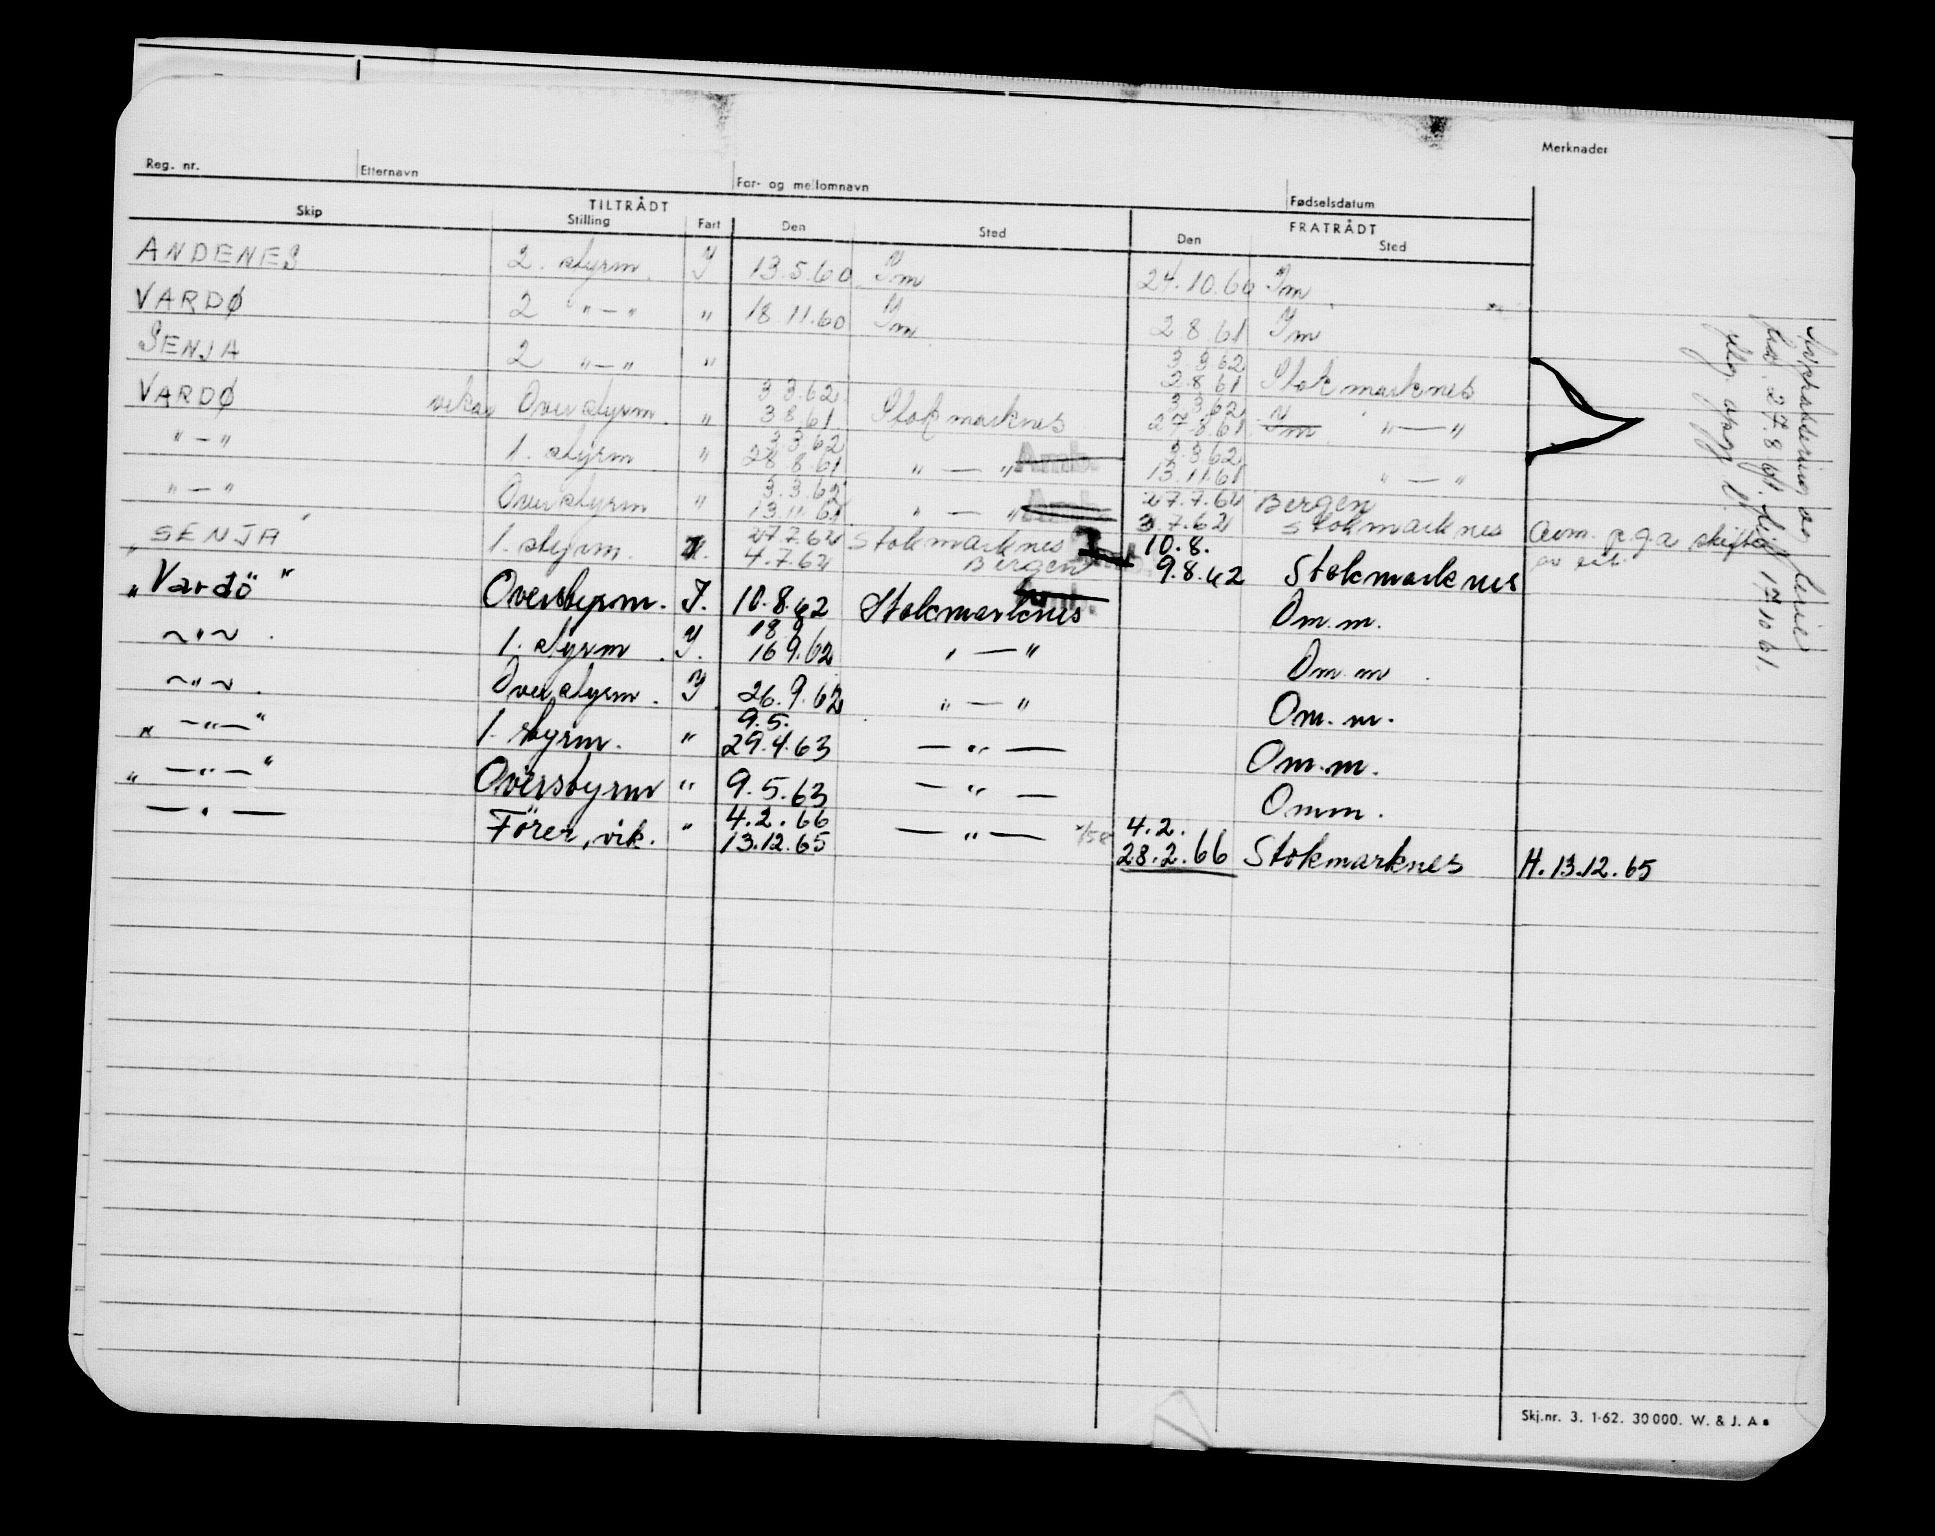 Merknader
Reg. nr. Etternavn For- og mellomnavn Fødselsdatum
TILTRÅDT FRATRÅDT
Skip Stilling Fart Den Sted Den Sted
ANDENES 2. styrm. I 13.5.60 Im 24.10.60 Im
VARDØ 2 "—" " 18.11.60 Im 2.8.61 Im
SENJA 2 "—" " 3.3.62 2.8.61 Stokmarknes
VARDØ Overstyrm. " 3.3.62 3.8.61 Stokmarknes 3.3.62 27.8.61 Im "—"
"—" 1. styrm " 3.3.62 28.8.61 "—" Amb. 3.3.62 13.11.61 "—"
"—" Overstyrm " 3.3.62 13.11.61 "—" 27.7.62 Bergen
3.7.62 Stokmarknes Avm. p.g.a skifte
SENJA 1. styrm. 27.7.62 Stokmarknes 10.8.
4.7.62 Bergen 9.8.62 Stokmarknes
„Vardö" Overstyrm. I. 10.8.62 Stokmarknes Amb. Om.m.
~"~ . 1. styrm. I. 18.9 16.9.62 "—" Om.m.
~"~ . Overstyrm. I 26.9.62 "—" Om.m.
„—"—" 1. styrm. " 9.5. 29.4.63 —"— Om.m.
„—"—" Overstyrm " 9.5.63 —"— Omm.
—"— Förer, vik. " 4.2.66 13.12.65 —"— 4.2. 28.2.66 Stokmarknes H. 13.12.65
ferie
27.8.61 17.10.61
Skj.nr. 3. 1-62. 30000. W. & J. A